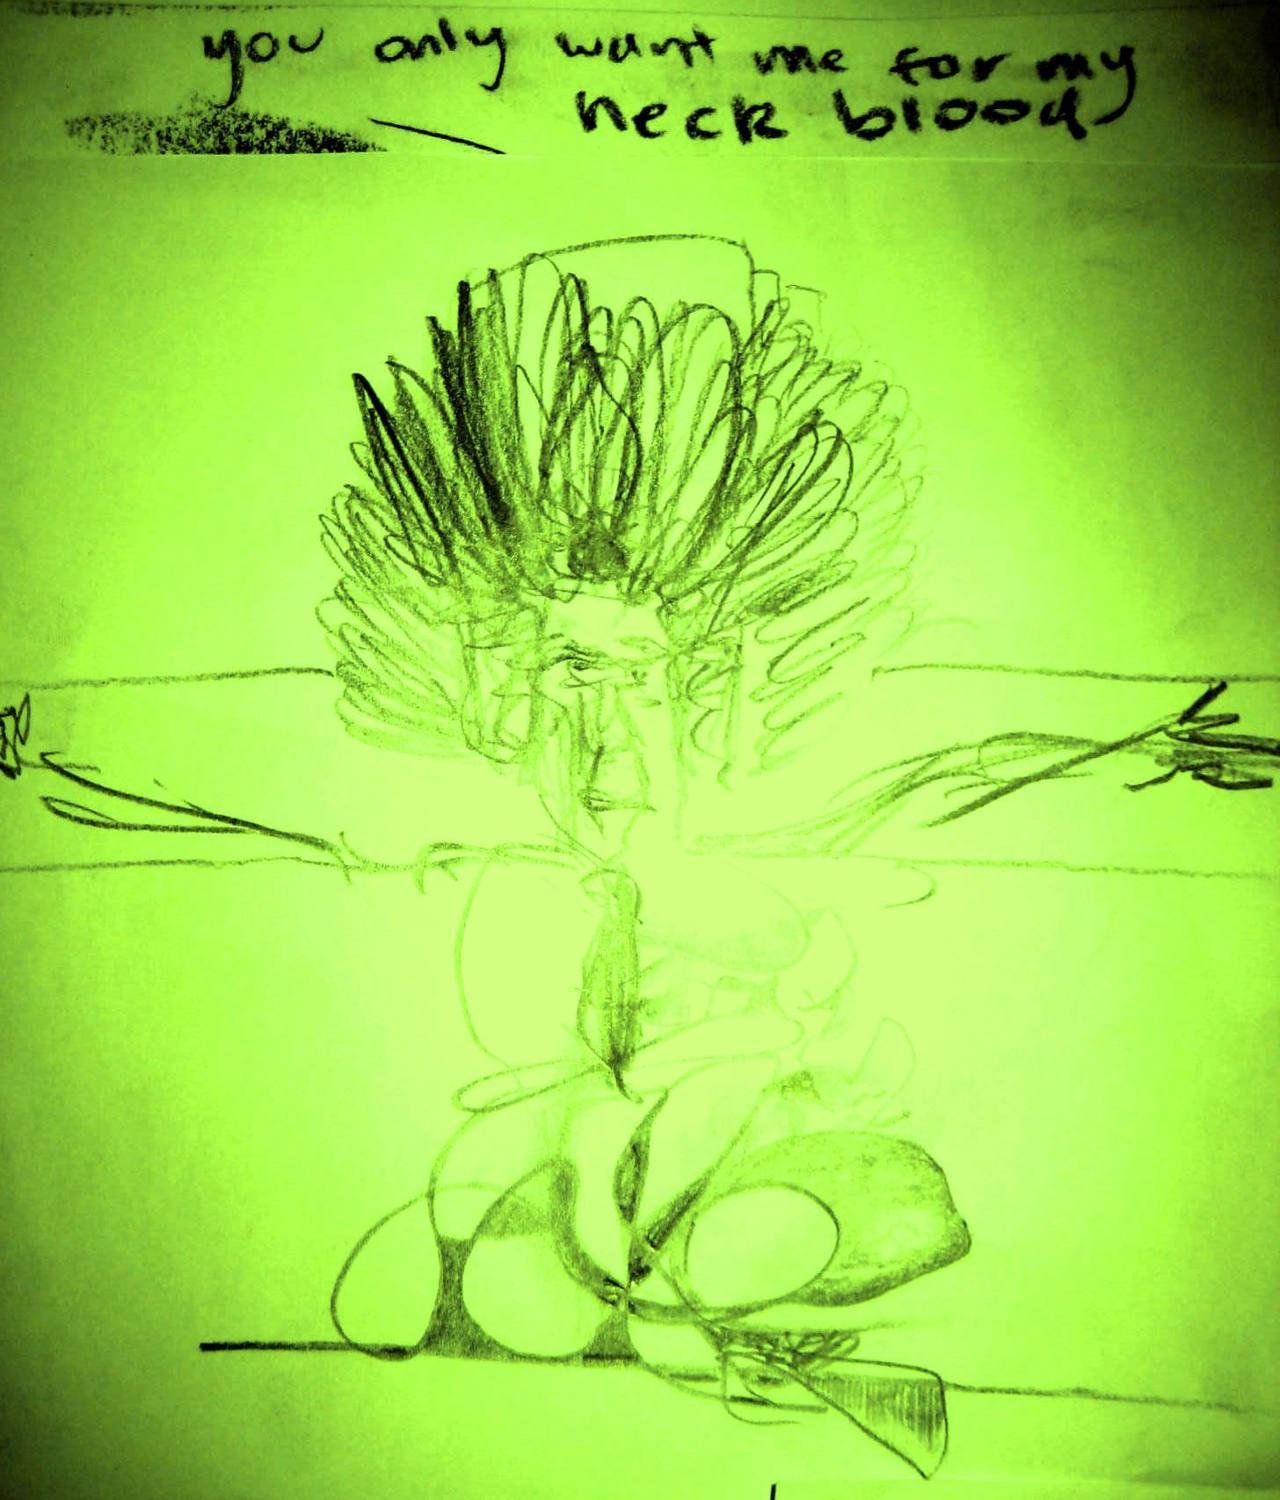 you only want me for my
neck blood